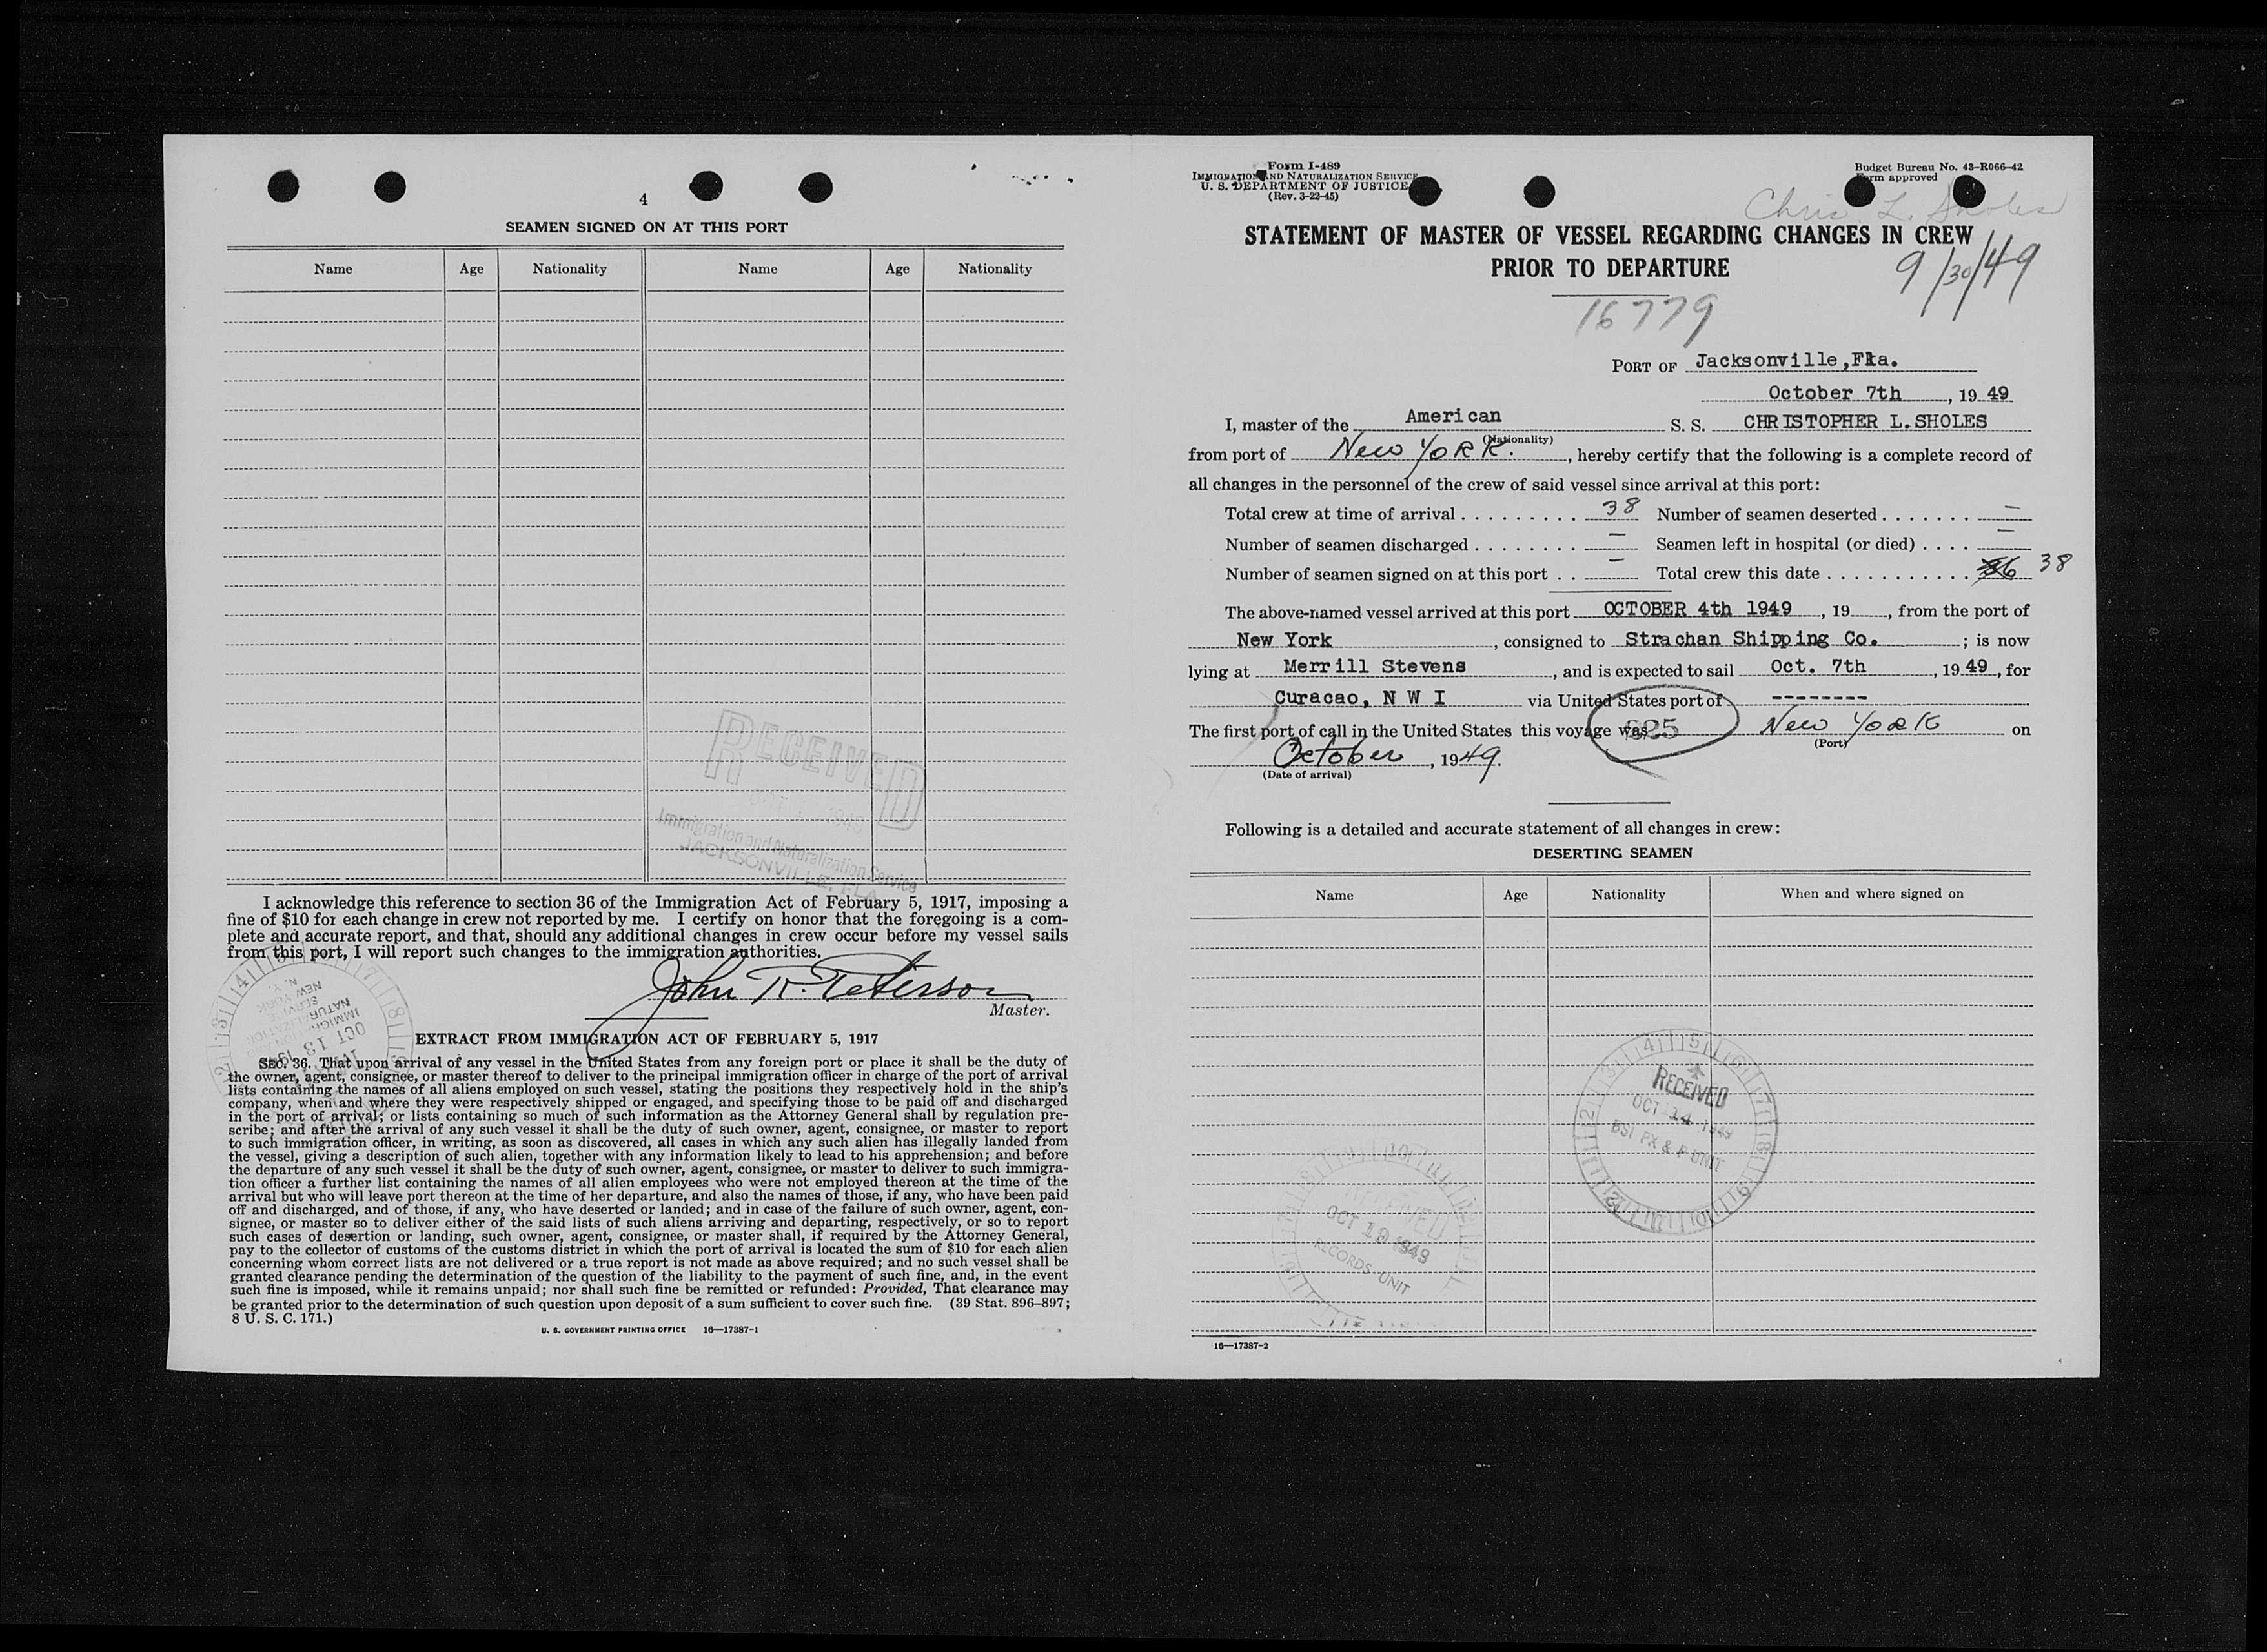 4
SEAMEN SIGNED ON AT THIS PORT
Name Age Nationality Name Age Nationality
RECEIVED
1949
Immigration and Naturalization Service
JACKSONVILLE, FLA.
I acknowledge this reference to section 36 of the Immigration Act of February 5, 1917, imposing a
fine of $10 for each change in crew not reported by me. I certify on honor that the foregoing is a com-
plete and accurate report, and that, should any additional changes in crew occur before my vessel sails
from this port, I will report such changes to the immigration authorities.
John R. Peterson
Master.
EXTRACT FROM IMMIGRATION ACT OF FEBRUARY 5, 1917
SEC. 36. That upon arrival of any vessel in the United States from any foreign port or place it shall be the duty of
the owner, agent, consignee, or master thereof to deliver to the principal immigration officer in charge of the port of arrival
lists containing the names of all aliens employed on such vessel, stating the positions they respectively hold in the ship's
company, when and where they were respectively shipped or engaged, and specifying those to be paid off and discharged
in the port of arrival; or lists containing so much of such information as the Attorney General shall by regulation pre-
scribe; and after the arrival of any such vessel it shall be the duty of such owner, agent, consignee, or master to report
to such immigration officer, in writing, as soon as discovered, all cases in which any such alien has illegally landed from
the vessel, giving a description of such alien, together with any information likely to lead to his apprehension; and before
the departure of any such vessel it shall be the duty of such owner, agent, consignee, or master to deliver to such immigra-
tion officer a further list containing the names of all alien employees who were not employed thereon at the time of the
arrival but who will leave port thereon at the time of her departure, and also the names of those, if any, who have been paid
off and discharged, and of those, if any, who have deserted or landed; and in case of the failure of such owner, agent, con-
signee, or master so to deliver either of the said lists of such aliens arriving and departing, respectively, or so to report
such cases of desertion or landing, such owner, agent, consignee, or master shall, if required by the Attorney General,
pay to the collector of customs of the customs district in which the port of arrival is located the sum of $10 for each alien
concerning whom correct lists are not delivered or a true report is not made as above required; and no such vessel shall be
granted clearance pending the determination of the question of the liability to the payment of such fine, and, in the event
such fine is imposed, while it remains unpaid; nor shall such fine be remitted or refunded: Provided, That clearance may
be granted prior to the determination of such question upon deposit of a sum sufficient to cover such fine. (39 Stat. 896–897;
8 U. S. C. 171.)
U. S. GOVERNMENT PRINTING OFFICE 16—17387-1
NEW YORK
SERVICE
NATURALIZATION
IMMIGRATION
OCT 13 1949
Form I-489
IMMIGRATION AND NATURALIZATION SERVICE
U. S. DEPARTMENT OF JUSTICE
(Rev. 3-22-45)
Budget Bureau No. 43–R066–42
Form approved
Chris. L. Sholes
STATEMENT OF MASTER OF VESSEL REGARDING CHANGES IN CREW
PRIOR TO DEPARTURE
9/30/49
16779
PORT OF Jacksonville,Fla.
October 7th, 19 49
I, master of the American S. S. CHRISTOPHER L.SHOLES
(Nationality)
from port of New York., hereby certify that the following is a complete record of
all changes in the personnel of the crew of said vessel since arrival at this port:
Total crew at time of arrival . . . . . . . . . 38 Number of seamen deserted . . . . . . . —
Number of seamen discharged . . . . . . . . — Seamen left in hospital (or died) . . . . —
Number of seamen signed on at this port . . — Total crew this date . . . . . . . . . . . 38
The above-named vessel arrived at this port OCTOBER 4th 1949, 19 , from the port of
New York, consigned to Strachan Shipping Co. ; is now
lying at Merrill Stevens, and is expected to sail Oct. 7th, 19 49, for
Curacao, N W I via United States port of --------
The first port of call in the United States this voyage was 625 New York on
(Port)
October, 1949.
(Date of arrival)
Following is a detailed and accurate statement of all changes in crew:
DESERTING SEAMEN
Name Age Nationality When and where signed on
RECEIVED
OCT 14 1949
BSI PX & P UNIT
RECEIVED
OCT 19 1949
RECORDS UNIT
16—17387-2